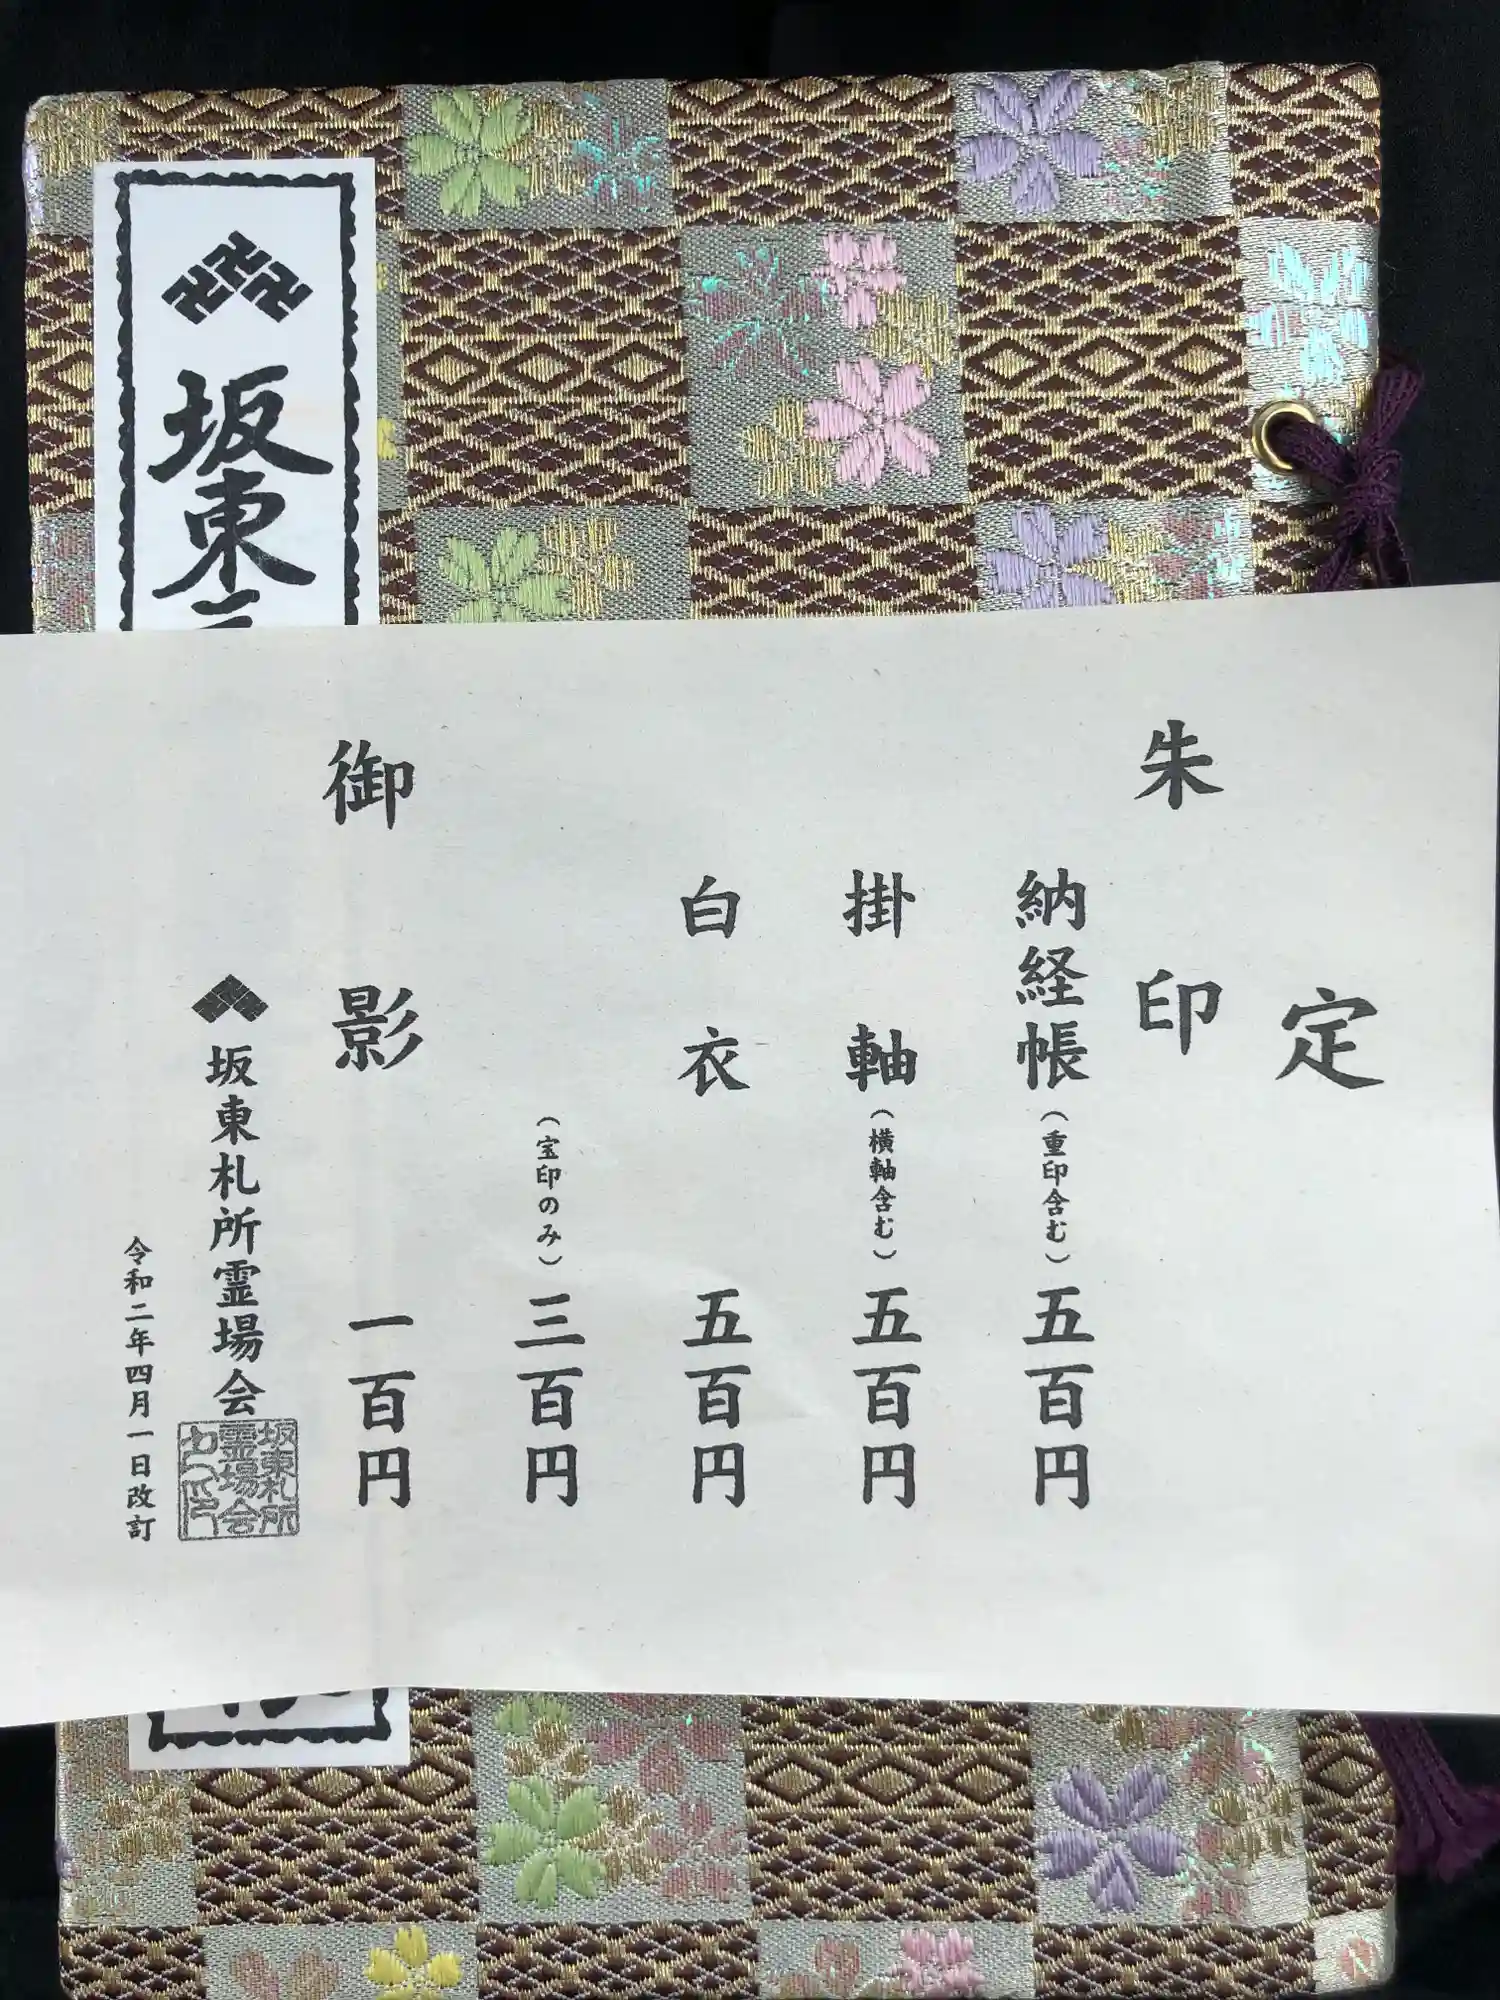 定
朱印
納経帳(重印含む)五百円
掛軸(横軸含む)五百円
白衣 五百円
(宝印のみ)三百円
御影 一百円
坂東札所霊場会
坂東札所
霊場会
令和二年四月一日改訂
坂東三